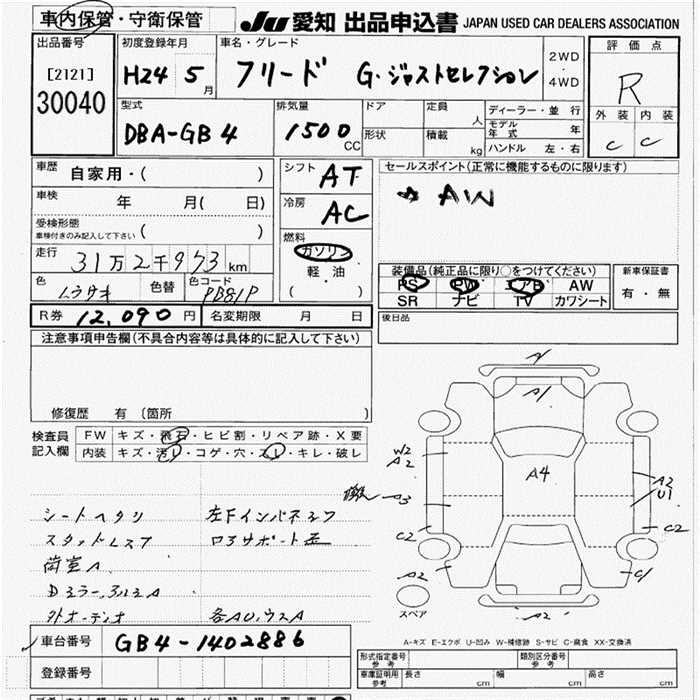 車内保管・守衛保管
JU 愛知 出品申込書 JAPAN USED CAR DEALERS ASSOCIATION
出品番号
[2121]
30040
初度登録年月
H24 5月
車名・グレード
フリード G.ジャストセレクション
2WD
4WD
評価点
R
外装 内装
C C
型式
DBA-GB4
排気量
1500 CC
ドア
形状
定員 人
積載 kg
ディーラー・並行
モデル年式 年
ハンドル 左・右
車歴
自家用・( )
車検
年 月( 日)
受検形態
車検付きのみ記入して下さい ( )
走行
31万2千973km
色
ムラサキ
色替
色コード
PB81P
シフト
AT
冷房
AC
燃料
ガソリン
軽油
( )
セールスポイント(正常に機能するものに限ります)
☆ AW
装備品(純正品に限り○をつけてください)
PS PW エアB AW
SR ナビ TV カワシート
新車保証書
有・無
R券 12,090円
名変期限 月 日
後日品
注意事項申告欄(不具合内容等は具体的に記入して下さい)
修復歴 有 (箇所 )
検査員
記入欄
FW キズ・飛石・ヒビ割・リペア跡・X要
内装 キズ・汚レ・コゲ・穴・スレ・キレ・破レ
シートヘタリ
スタッドレス
荷室A
外オーディオ
左Fインパネ
ロアサポート
各AU,ウスA
A1
W2
A2
A4
A3
A2
U1
C2
C2
A2
C1
A2
スペア
A-キズ E-エクボ U-凹み W-補修跡 S-サビ C-腐食 XX-交換済
車台番号 GB4-1402886
登録番号
形式指定番号
参考
類別区分番号
参考
車庫証明用
参考
長さ cm 幅 cm 高さ cm